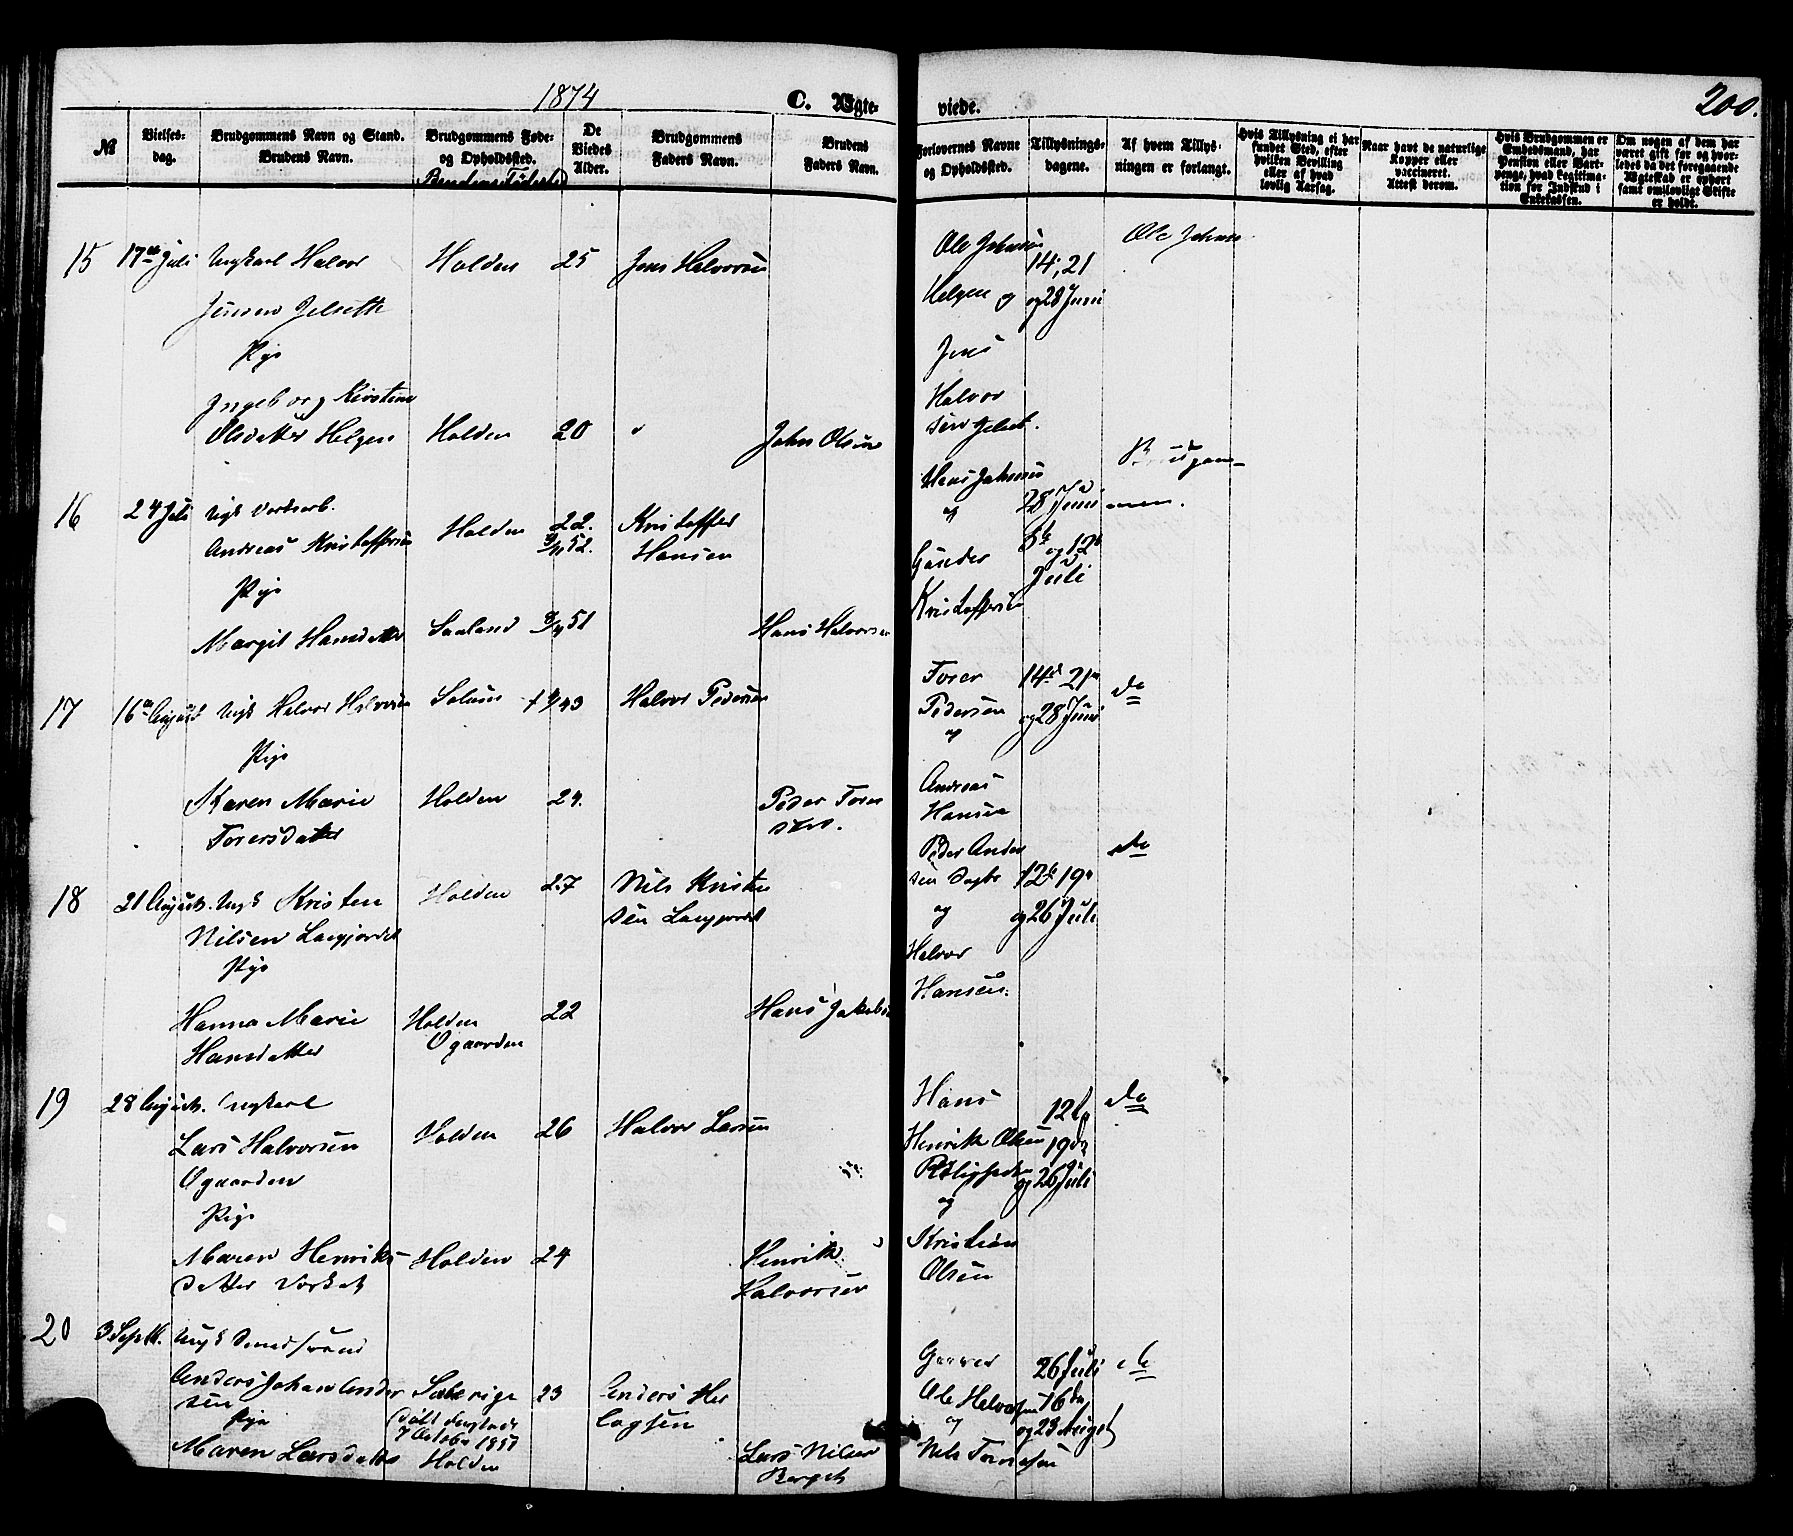 1874 C. Ægte- viede. 200.
№
Vielses-
dag.
Brudgommens Navn og Stand.
Brudens Navn.
Brudgommens Føde-
og Opholdssted.
De
Viedes
Alder.
Brudgommens
Faders Navn.
Brudens
Faders Navn.
Forlovernes Navne
og Opholdssted.
Tillysnings-
dagene.
Af hvem Tillys-
ningen er forlangt.
Hvis Tillysning ei har
fundet Sted, efter
hvilken Bevilling
eller af hvad
lovlig Aarsag.
Naar havt de naturlige
Kopper eller
vaccineret.
Attest derom.
Hvis Brudgommen er
Embedsmand, har
Pension eller Vart-
penge, hvad Legitima-
tion for Indskud i
Enkekassen.
Om nogen af dem har
været gift før og hvor-
ledes da det foregaaende
Ægteskab er ophørt
samt om lovligt Skifte
er holdt.
15 17de Juli Ungkarl Halvor Holden 25 Jens Halvorsen
Jensen Jelseth
Pige
Ingeborg Kirstine
Olsdatter Helgen Holden 20 John Olsen
Ole Johnsen
Helgen og
Jens
Halvor
sen Jelset.
14, 21
og 28 Juni
Ole Johns
16 24 Juli Ungk
Andreas Kristoffersen Holden 22. Kristoffer
Hansen
Pige
Margit Hansdatter Sauland 51 Hans Halvorsen
Hans Johnsen
og
Gunder
Kristoffersen
28 Juni
5te og 12te
Juli
Brudgom-
men.
17 16de August Ungk Halvor Halvorsen Solum Halvor Pedersen
Pige
Karen Marie Holden 24. Peder Tores
Toresdatter sen.
Torer
Pedersen
og
Andreas
Hansen
14de 21de
og 28 Juni
do
18 21 August. Ungk Kristen Holden 27 Nils Kristen
Nilsen Langjordet sen Langjordet
Pige
Hanna Marie Holden 22 Hans Jakobsen
Hansdatter Ogaarden
Peder Ander
sen
og
Halvor
Hansen.
12te 19de
og 26 Juli
do
19 28 August. Ungkarl
Lars Halvorsen Holden 26 Halvor Larsen
Ogaarden
Pige
Maren Henriks- Holden 24 Henrik
datter Halvorsen
Hans
Henrik Olsen
og
Kristian
Olsen
12te
19de
og 26 Juli
do
20 3 Septb. Ungk
Anders Johan Ander Sverige 23 Anders Her
sen logsen
Pige
Maren Larsdatter Holden Lars Nilsen
Berget
Ole Halvorsen
og
Nils Toresen
26 Juli
16de
og 23 August
do